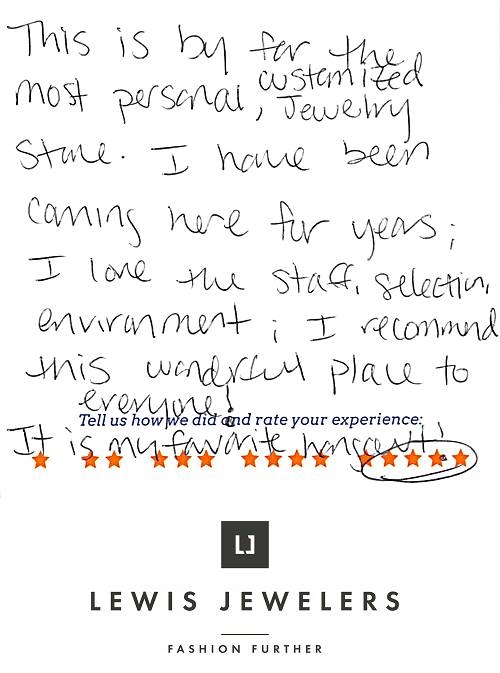 This is by far the
customized
most personal, Jewelry
Store. I have been
coming here for years;
I love the staff, selection,
environment; I recommend
this wonderful place to
everyone!
Tell us how we did and rate your experience:
It is my favorite hangout!
LJ
LEWIS JEWELERS
FASHION FURTHER